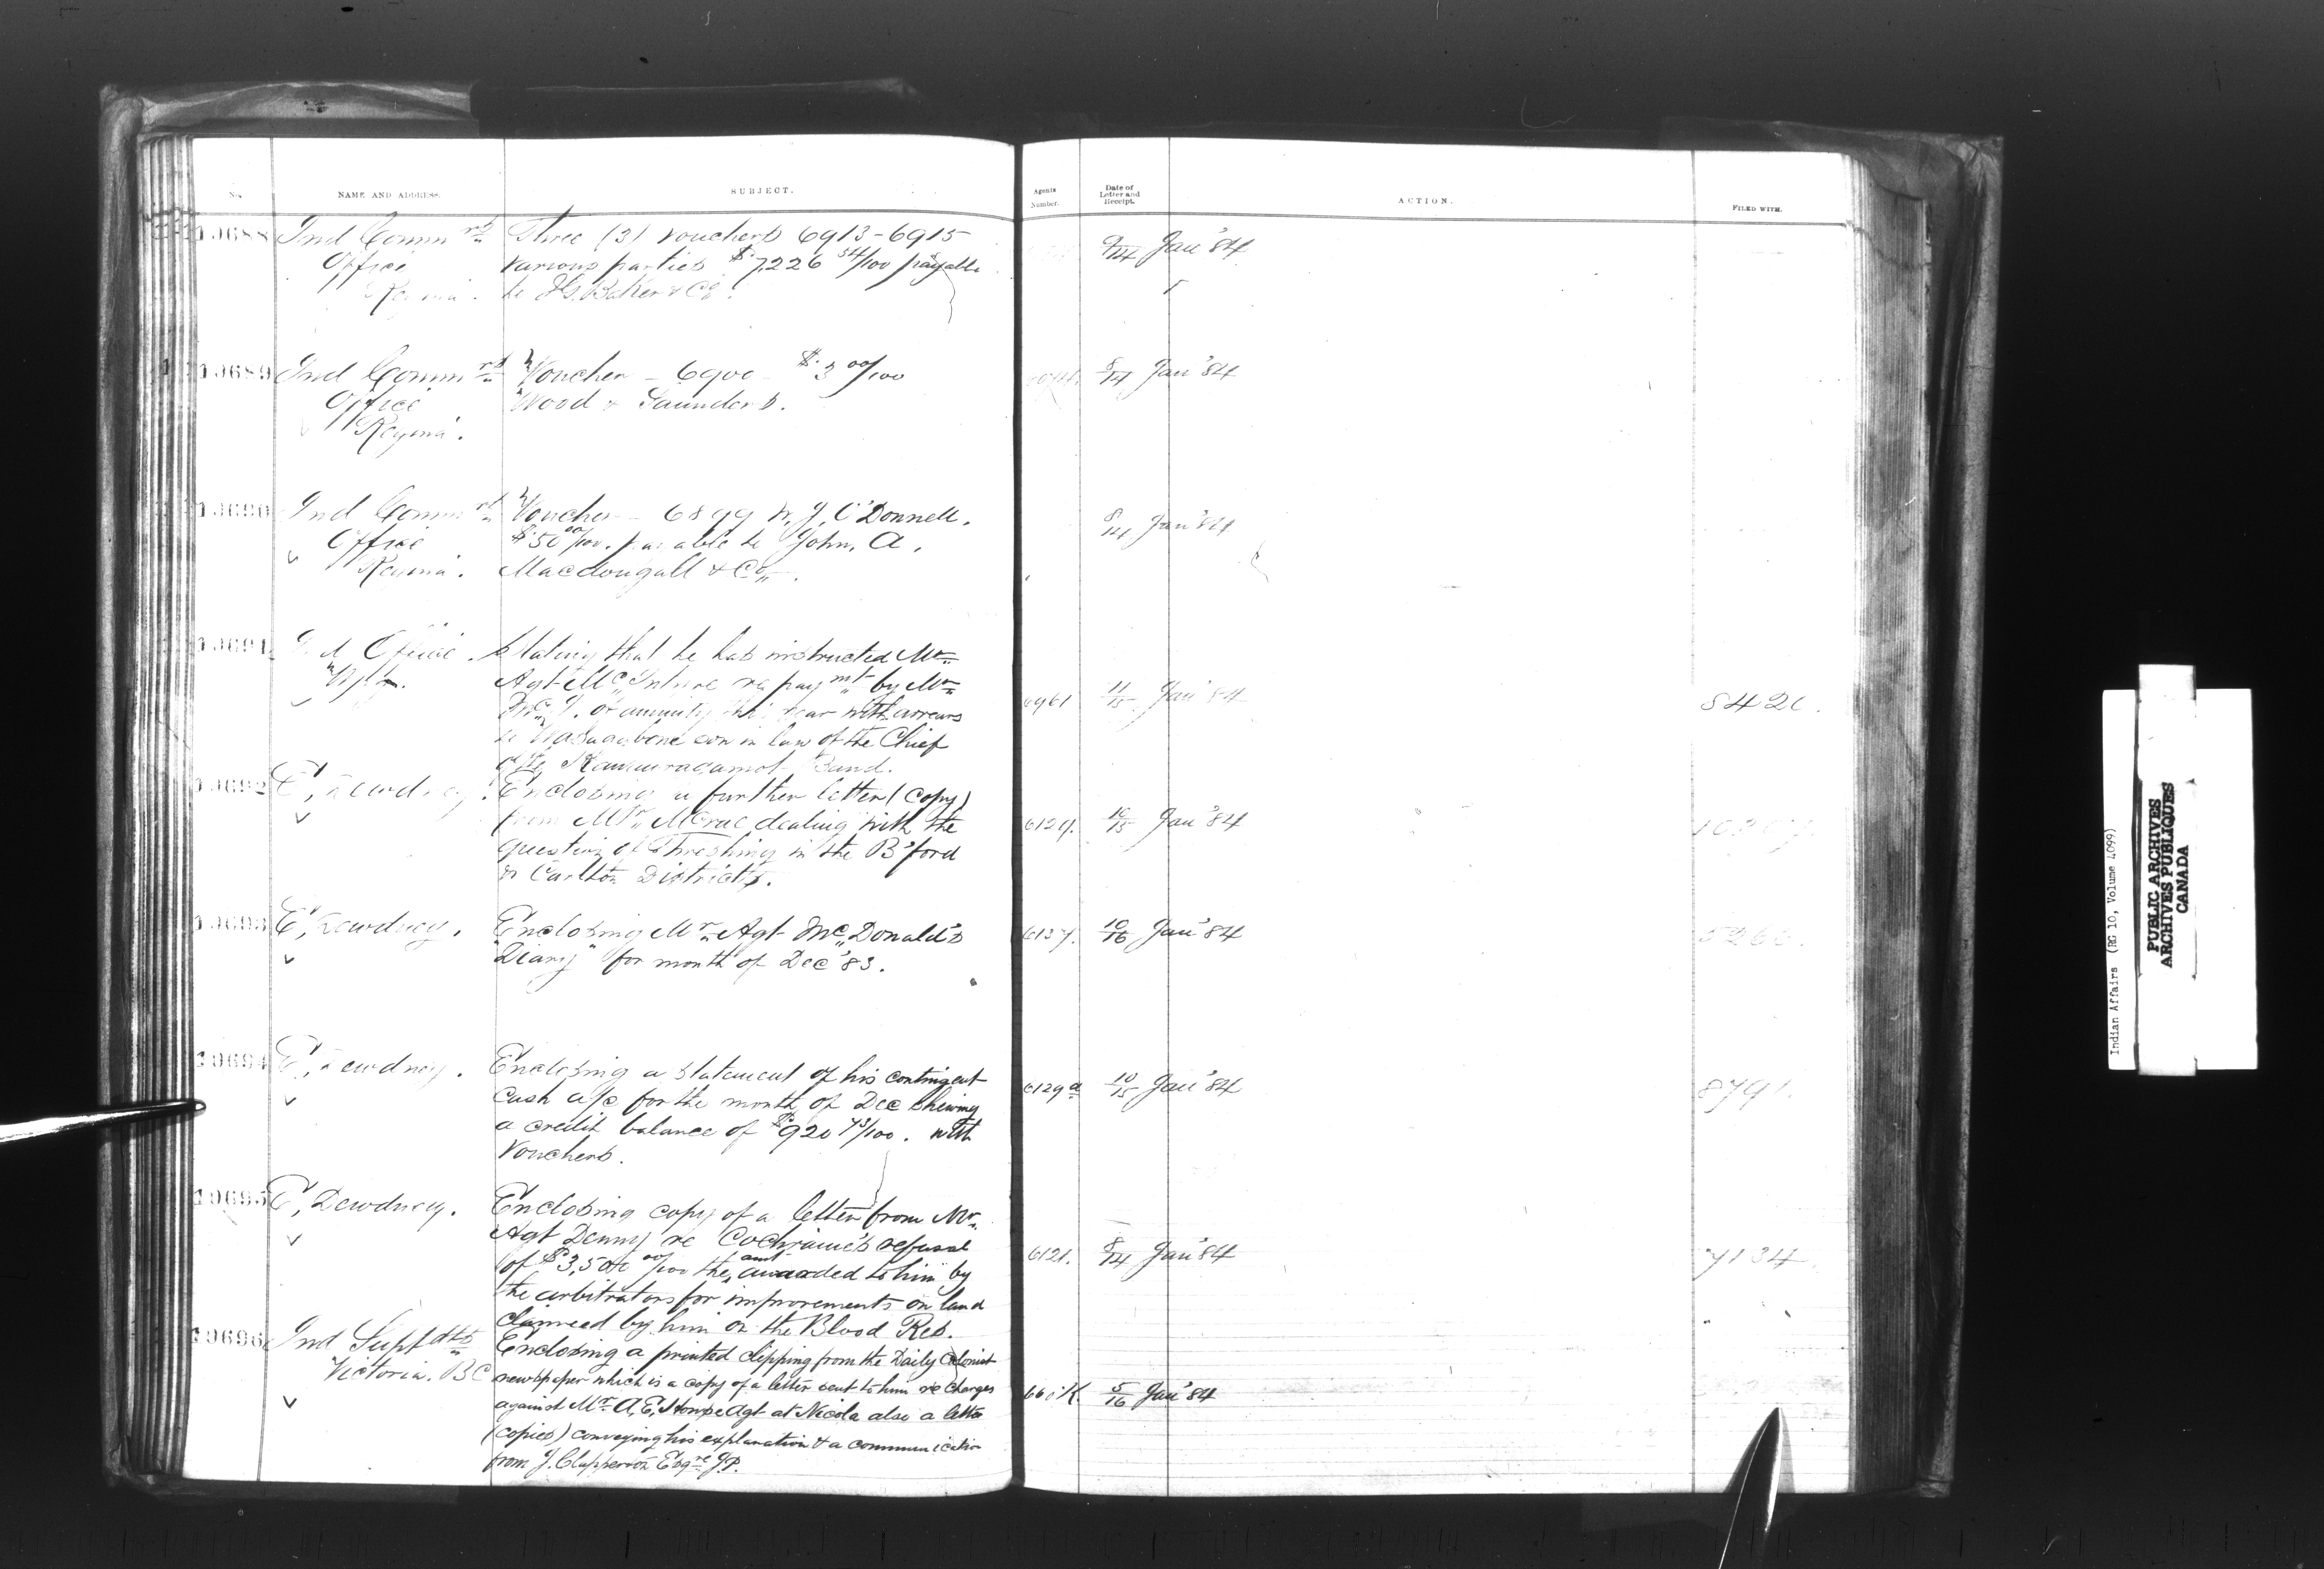 No.
NAME AND ADDRESS.
SUBJECT.
Agents Number.
Date of Letter and Receipt.
ACTION.
FILED WITH.
10688
Ind Commrs
Office
Regina.
Three (3) vouchers 6913-6915
various parties $7,226 54/100 payable
to I.G. Baker & Co.
9/14 Jan '84
10689
Ind Commrs
Office
Regina.
Voucher - 6900 - $3 00/100
Wood & Saunders.
8/14 Jan '84
10690
Ind Commrs
Office
Regina.
Voucher - 6899 W. J. O'Donnell.
$50 00/100. payable to John. A.
Macdougall & Co.
8/14 Jan '84
10691
Ind Office.
Wpg.
Stating that he has instructed Mr
Agt McIntyre re paymt by Mr
McI. of annuity this year with arrears
to son in law of the Chief
of the Band.
6961
11/15 Jan '84
10692
E, Dewdney.
Enclosing a further letter (copy)
from Mr. McCrae dealing with the
question of Threshing in the B'ford
& Carlton Districts.
10/15 Jan '84
10693
E, Dewdney.
Enclosing Mr Agt McDonald's
"Diary" for month of Dec '83.
6137.
10/16 Jan '84
10694
E, Dewdney.
Enclosing a statement of his contingent
cash a/c for the month of Dec shewing
a credit balance of $920 43/100. with
Vouchers.
6129a
10/15 Jan '84
8791.
10695
E, Dewdney.
Enclosing copy of a letter from Mr.
Agt Denny re Cochrane's refusal
of $3,500 00/100 the amt awarded to him by
the arbitrators for improvements on land
claimed by him on the Blood Res.
6121.
8/14 Jan '84
7134
10696
Ind Suptdts
Victoria. BC
Enclosing a printed clipping from the Daily Colonist
newspaper which is a copy of a letter sent to him re charges
against Mr. A, E, Howse Agt at Nicola also a letter
(copies) conveying his explanation & a communication
from J. Clapperton Esqre J.P.
660K.
5/16 Jan '84
Indian Affairs (RG 10, Volume 4099)
PUBLIC ARCHIVES
ARCHIVES PUBLIQUES
CANADA